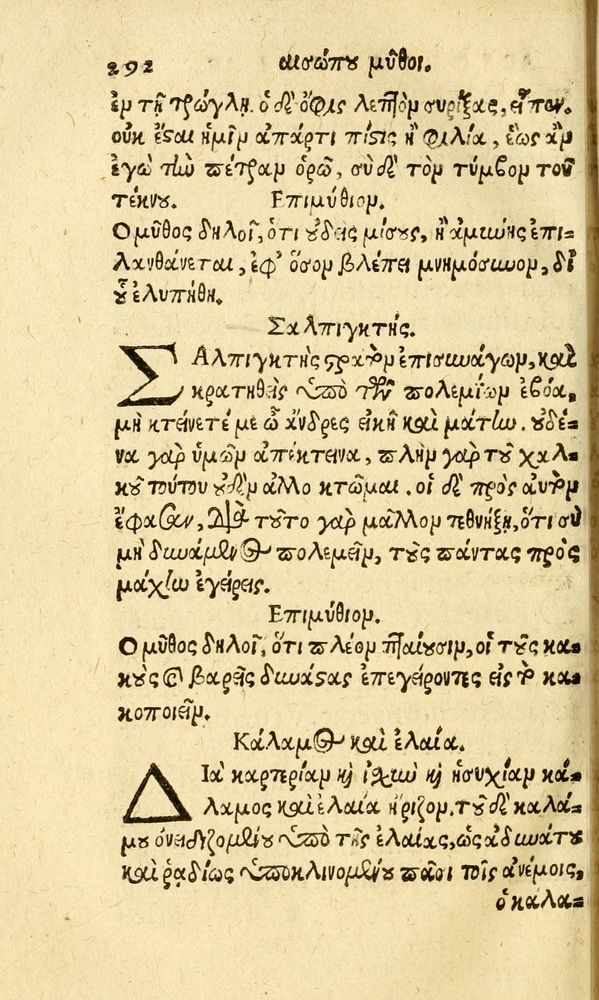 292 αισώπου μῦθοι.
ἐν τῇ τρώγλῃ. ὁ δὲ ὄφις λεπτὸν συρίξας, εἶπεν.
οὐκ ἔσαι ἡμῖν ἀπάρτι πίστις ἢ φιλία, ἕως ἂν
ἐγὼ τὴν πέτραν ὁρῶ, σὺ δὲ τὸν τύμβον τοῦ
τέκνου. Επιμύθιον.
Ο μῦθος δηλοῖ, ὅτι οὐδεὶς μίσους, ἢ ἀμύνης ἐπι-
λανθάνεται, ἐφ' ὅσον βλέπει μνημόσυνον, δι'
οὗ ἐλυπήθη.
Σαλπιγκτής.
ΣΑλπιγκτὴς στρατὸν ἐπισυνάγων, καὶ
κρατηθεὶς ὑπὸ τῶν πολεμίων ἐβόα,
μὴ κτείνετέ με ὦ ἄνδρες εἰκῆ καὶ μάτην. οὐδέ-
να γὰρ ὑμῶν ἀπέκτεινα, πλὴν γὰρ τοῦ χαλ-
κοῦ τούτου οὐδὲν ἄλλο κτῶμαι. οἱ δὲ πρὸς αὐτὸν
ἔφασαν, διὰ τοῦτο γὰρ μᾶλλον τεθνήξῃ, ὅτι σὺ
μὴ δυνάμενος πολεμεῖν, τοὺς πάντας πρὸς
μάχην ἐγείρεις.
Επιμύθιον.
Ο μῦθος δηλοῖ, ὅτι πλέον πταίουσιν, οἱ τοὺς κα-
κοὺς καὶ βαρεῖς δυνάστας ἐπεγείροντες εἰς τὸ κα-
κοποιεῖν.
Κάλαμος καὶ ἐλαία.
ΔΙὰ καρτερίαν καὶ ἰχὺν καὶ ἡσυχίαν κά-
λαμος καὶ ἐλαία ἤριζον. τοῦ δὲ καλά-
μου ὀνειδιζομένου ὑπὸ τῆς ἐλαίας, ὡς ἀδυνάτου
καὶ ῥᾳδίως ὑποκλινομένου πᾶσι τοῖς ἀνέμοις,
ὁ καλα-